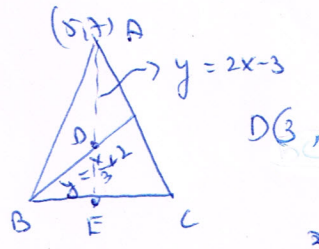 (5,7) A
y = 2x-3
D(3,
D
y = x/3 + 2
B
E
C